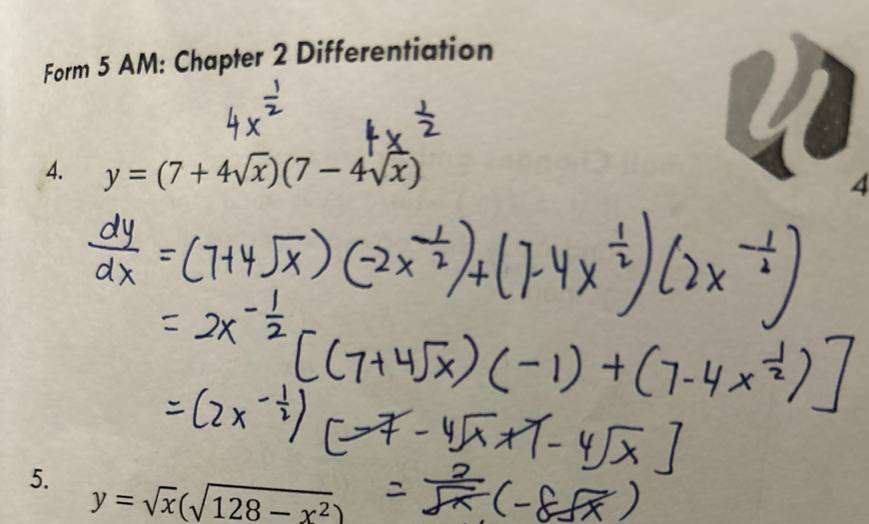 Form 5 AM: Chapter 2 Differentiation
4x^{\frac{1}{2}} 4x^{\frac{1}{2}}
4. y = (7 + 4√x)(7 − 4√x)
4
\frac{dy}{dx} = (7+4√x)(-2x^{-\frac{1}{2}})+(7-4x^{\frac{1}{2}})(2x^{-\frac{1}{2}})
= 2x^{-\frac{1}{2}} [(7+4√x)(-1)+(7-4x^{\frac{1}{2}})]
= (2x^{-\frac{1}{2}}) [-7-4√x+7-4√x]
= \frac{2}{√x}(-8√x)
5. y = √x(√128 − x²)